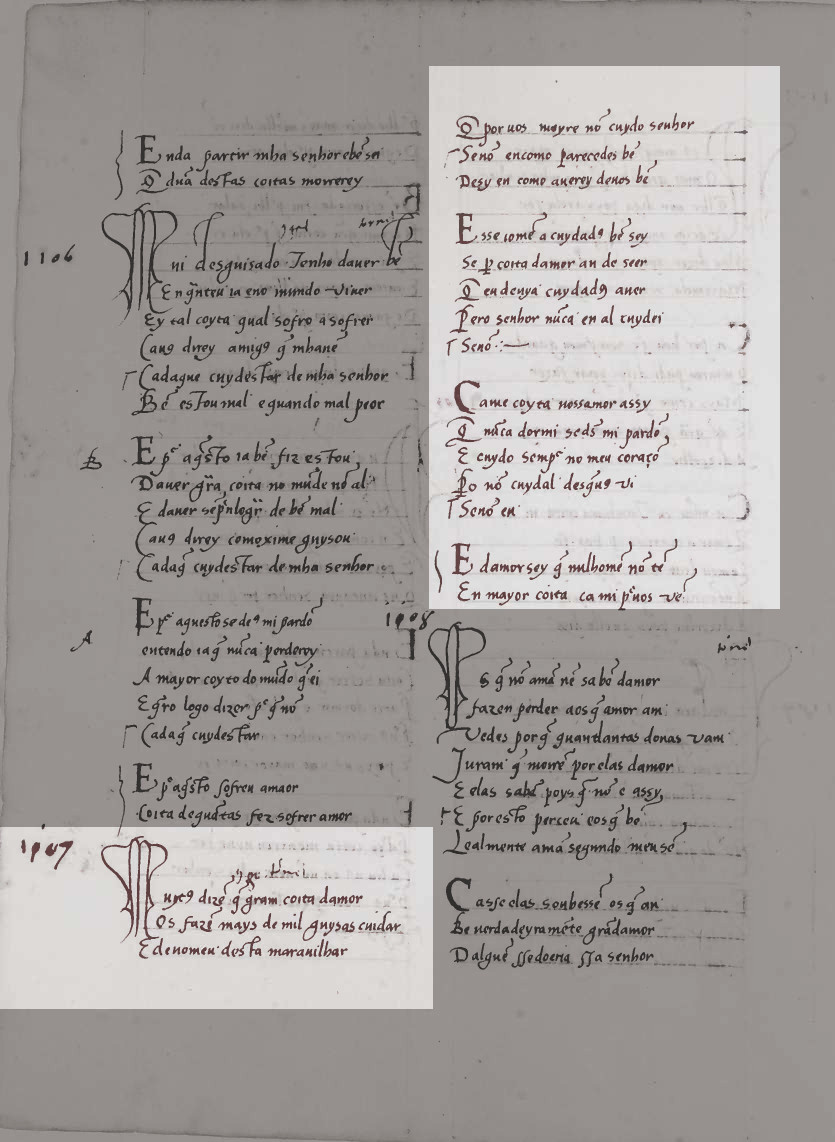 Enda partir mha senhor ebẽ sei
Q̃ dũa destas coitas morrerey
1106
Mui desguisado Tenho dauer bẽ
En q̃nteu ia eno mundo viuer
Ey tal coyta qual sofro a sofrer
Caus direy amigꝯ q̃ mhauẽ
Cadaque cuydestar de mha senhor
Bẽ estou mal e quando mal peor
B
E pʳ aq̃sto ia bẽ fiz estou
Dauer grã coita no mũde nõ al
E dauer sẽp̃nlogr̃ de bẽ mal
Caus direy comoxime guysou
Cadaq̃ cuydestar de mha senhor
A
E pʳ aquesto se deꝯ mi pardõ
entendo iaq̃ nũca perderey
A mayor coyto do mũdo q̃ ei
E q̃ro logo dizer pʳ q̃ nõ
Cadaq̃ cuydestar
E pʳ aq̃sto sofreu amaor
Coita de quãtas fez sofrer amor
1107
Muytꝯ dizẽ q̃ gram coita damor
Os fazẽ mays de mil guysas cuidar
E denomeu desta marauilhar
Q̃ por uos moyre nõ cuydo senhor
Senõ encomo parecedes bẽ
Desy en como auerey deuos bẽ
Esse iomẽ a cuydadꝯ bẽ sey
Se p̱ coita damor an de seer
Q̃ eu deuya cuydadꝯ auer
Pero senhor nũca en al cuydei
Senõ
Came coyta uossamor assy
Q̃ nũca dormi se dꝯ mi pardõ
E cuydo sempʳ no meu coraçõ
P̱o nõ cuydal desqũꝯ vi
Senõ en
E damor sey q̃ nulhomẽ nõ tẽ
En mayor coita ca mi pʳ uos vẽ
1108
Os q̃ nõ amã nẽ sabẽ damor
fazen perder aos q̃ amor am
Vedes porq̃ quantlantas donas vam
Juram q̃ morrẽ por elas damor
E elas sabẽ poys q̃ nõ e assy
E por esto perceu eos q̃ bẽ
Lealmente amã segundo meu sẽ
Casse elas soubessẽ os q̃ an
Be uerdadeyramẽte grãdamor
Dalguẽ sse doeria ssa senhor